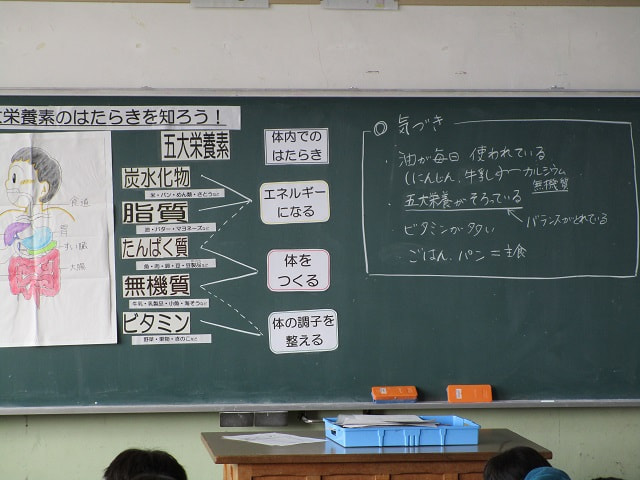 大栄養素のはたらきを知ろう！
五大栄養素
体内での
はたらき
炭水化物
米・パン・めん類・さとうなど
脂質
油・バター・マヨネーズなど
たんぱく質
魚・肉・卵・豆・豆製品など
無機質
牛乳・乳製品・小魚・海そうなど
ビタミン
野菜・果物・きのこなど
エネルギー
になる
体を
つくる
体の調子を
整える
食道
胃
すい臓
大腸
◎ 気づき
・油が毎日 使われている
・にんじん、牛乳 カルシウム
無機質
・五大栄養がそろっている
バランスがとれている
・ビタミンが多い
・ごはん、パン＝主食